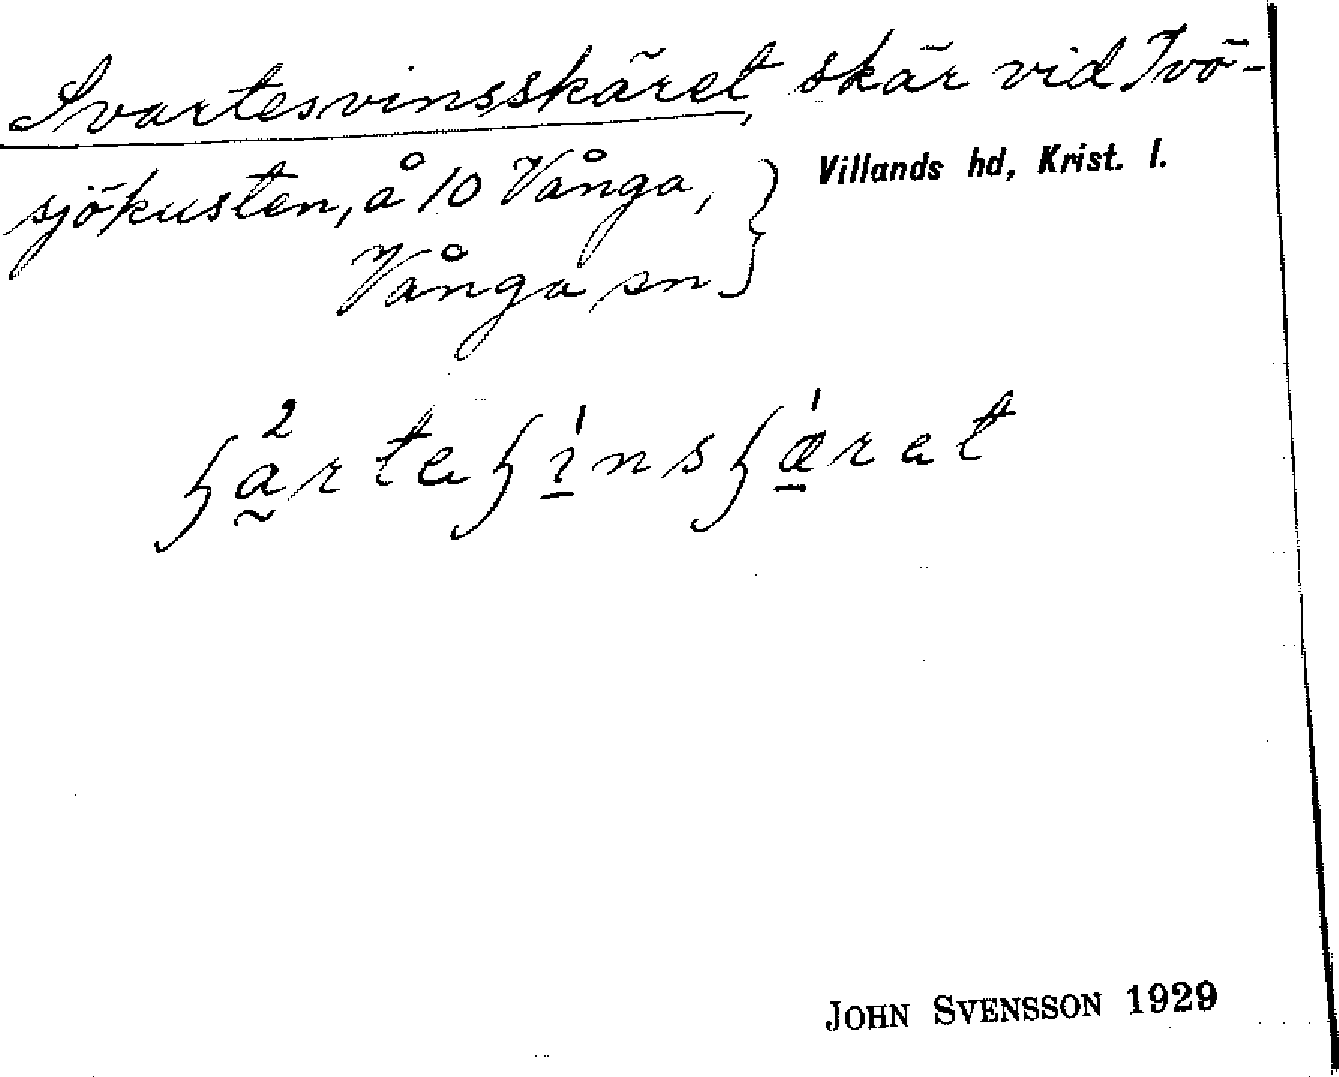 Svartesvinsskäret, skär vid Ivö-
sjökusten, å 10 Vånga, } Villands hd, Krist. l.
Vånga sn
JOHN SVENSSON 1929